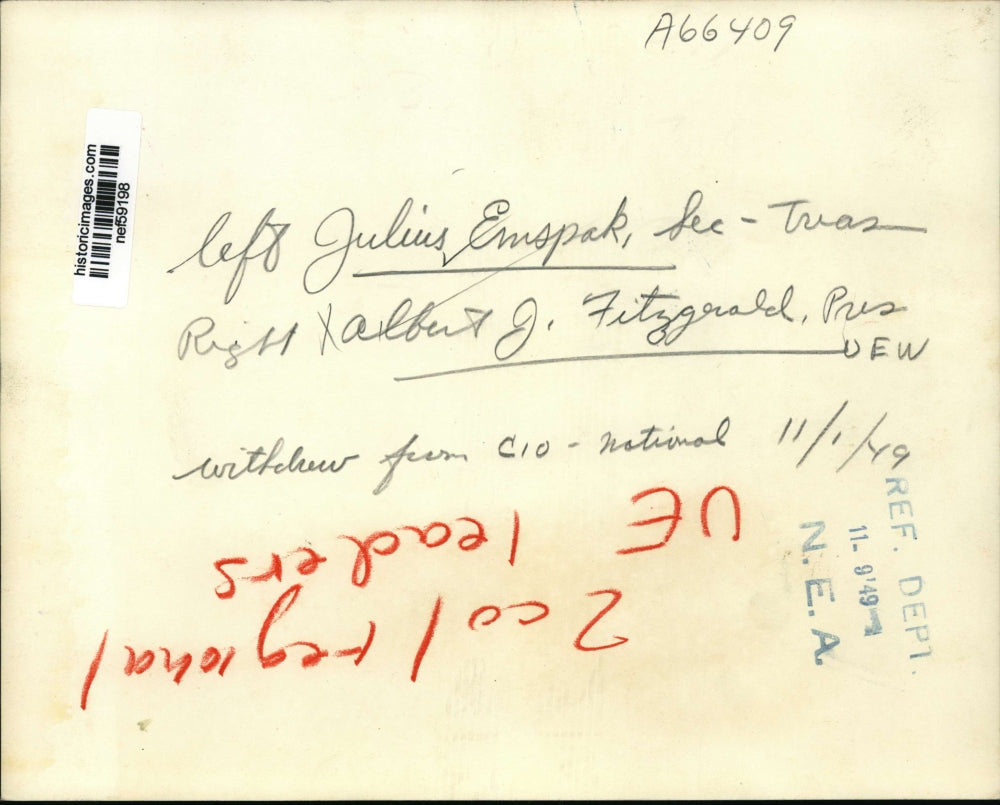 A66409
historicimages.com
nef59198
left Julius Emspak, Sec - Treas
Right Albert J. Fitzgerald, Pres
UEW
withdrew from CIO - national 11/1/49
REF. DEPT.
11-9'49
N.E.A.
2 col regional
UE leaders